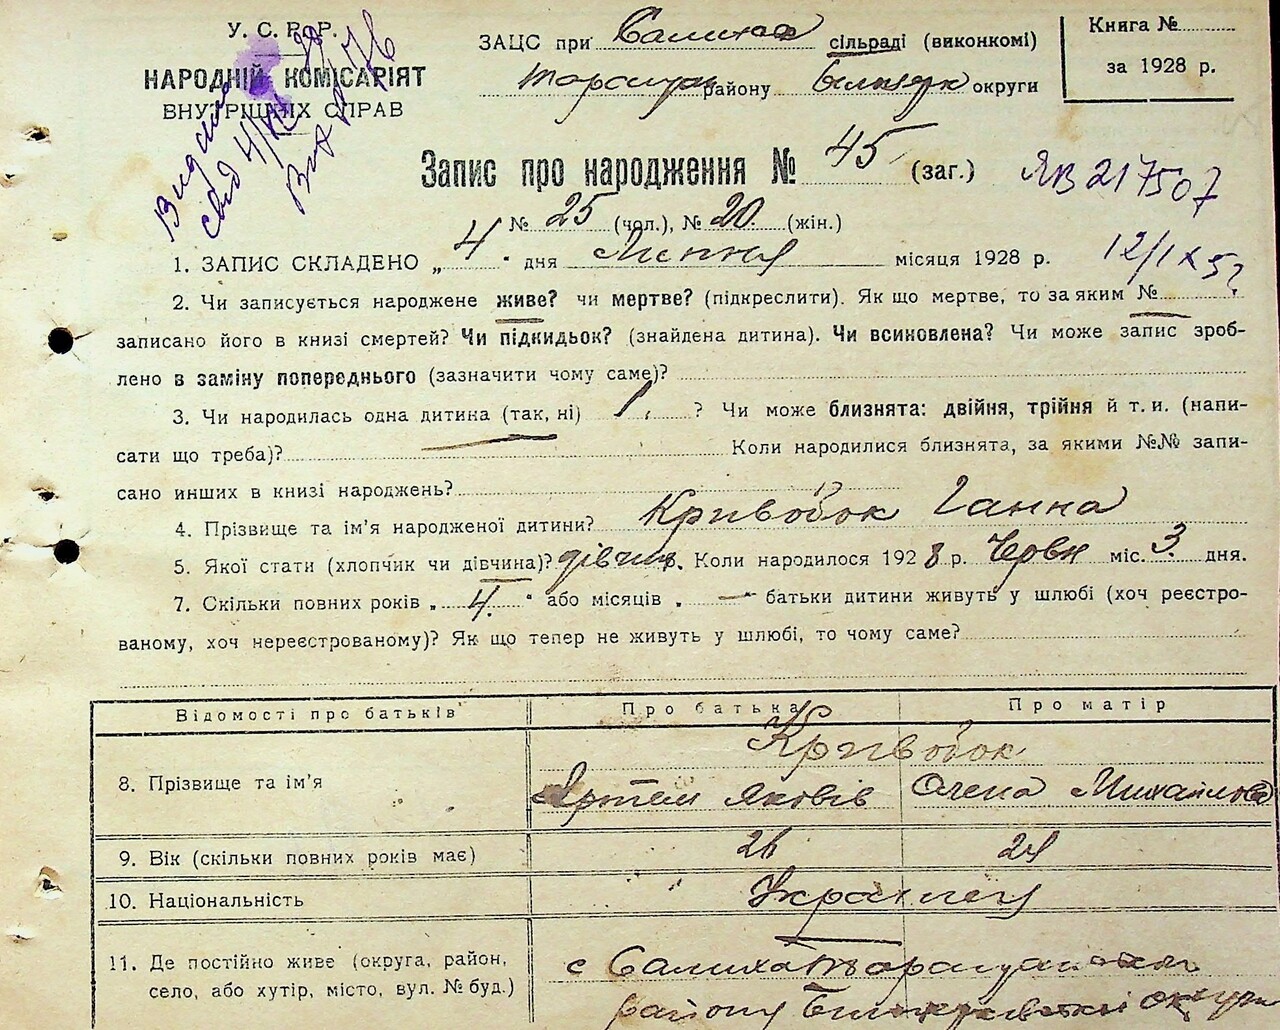 У. С. Р. Р.
НАРОДНІЙ КОМІСАРІЯТ
ВНУТРІШНІХ СПРАВ
Видано
свід 4/
ЗАЦС при Салиха сільраді (виконкомі)
району округи
Книга №
за 1928 р.
Запис про народження № 45 (заг.) ЯВ 217507
№ 25 (чол.), № 20 (жін.)
1. ЗАПИС СКЛАДЕНО „ 4 " дня Липня місяця 1928 р. 12/IX 5
2. Чи записується народжене живе? чи мертве? (підкреслити). Як що мертве, то за яким №
записано його в книзі смертей? Чи підкидьок? (знайдена дитина). Чи всиновлена? Чи може запис зроб-
лено в заміну попереднього (зазначити чому саме)?
3. Чи народилась одна дитина (так, ні) 1. ? Чи може близнята: двійня, трійня й т. и. (напи-
сати що треба)? Коли народилися близнята, за якими №№ запи-
сано инших в книзі народжень?
4. Прізвище та ім'я народженої дитини? Кривобок Ганна
5. Якої стати (хлопчик чи дівчина)? дівчин. Коли народилося 1928 р. Червн міс. 3 дня.
7. Скільки повних років „ 4. " або місяців „ — " батьки дитини живуть у шлюбі (хоч реєстро-
ваному, хоч нереєстрованому)? Як що тепер не живуть у шлюбі, то чому саме?
Відомості про батьків Про батька Про матір
Кривобок
8. Прізвище та ім'я Артем Яковів Олена Михайлова
9. Вік (скільки повних років має) 26 24
10. Національність Українці
11. Де постійно живе (округа, район, с Салиха Таращанськ
село, або хутір, місто, вул. № буд.) району Білоцерківської округи